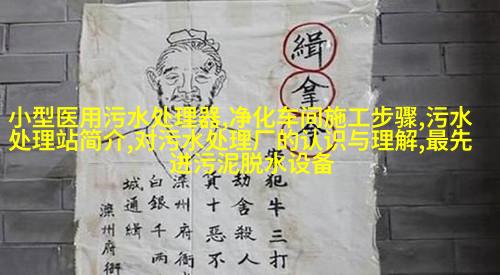 小型医用污水处理器,净化车间施工步骤,污水
处理站简介,对污水处理厂的认识与理解,最先
进污泥脱水设备
緝拿
犯牛三打
劫舍殺人
十惡不
滦州府衙
白銀千兩
城通緝
滦州府衙